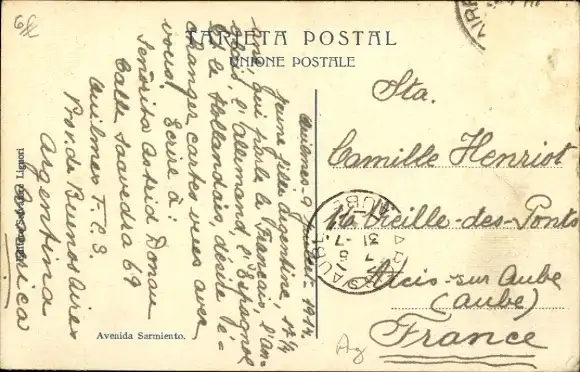 TARJETA POSTAL
UNIONE POSTALE
Quilmes - 9 Juillet - 1914.
Jeune fille Argentine, 17 ½
ans, qui parle le Français, l'An-
glais, l'Allemand, l'Espagnol
& le Hollandais, désire é-
changer cartes vues avec
vous. Ecrire à:
Señorita Astrid Donau
Calle Saavedra 69
Quilmes F.C.S.
Prov. de Buenos Aires
Argentina
America
Sta.
Camille Henriot
Vieille-des-Ponts
Arcis-sur Aube
(Aube)
France
Avenida Sarmiento.
AUBE